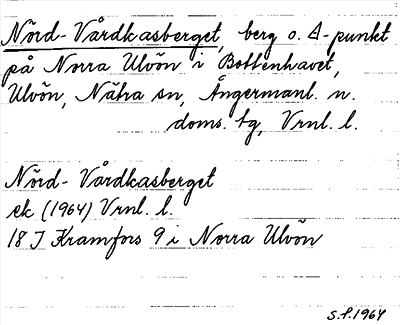 Nörd-Vårdkasberget, berg o. Δ-punkt
på Norra Ulvön i Bottenhavet,
Ulvön, Nätra sn, Ångermanl. n.
doms. tg, Vrnl. l.
Nörd-Vårdkasberget
ek (1964) Vrnl. l.
18 J Kramfors 9 i Norra Ulvön
S.F. 1964